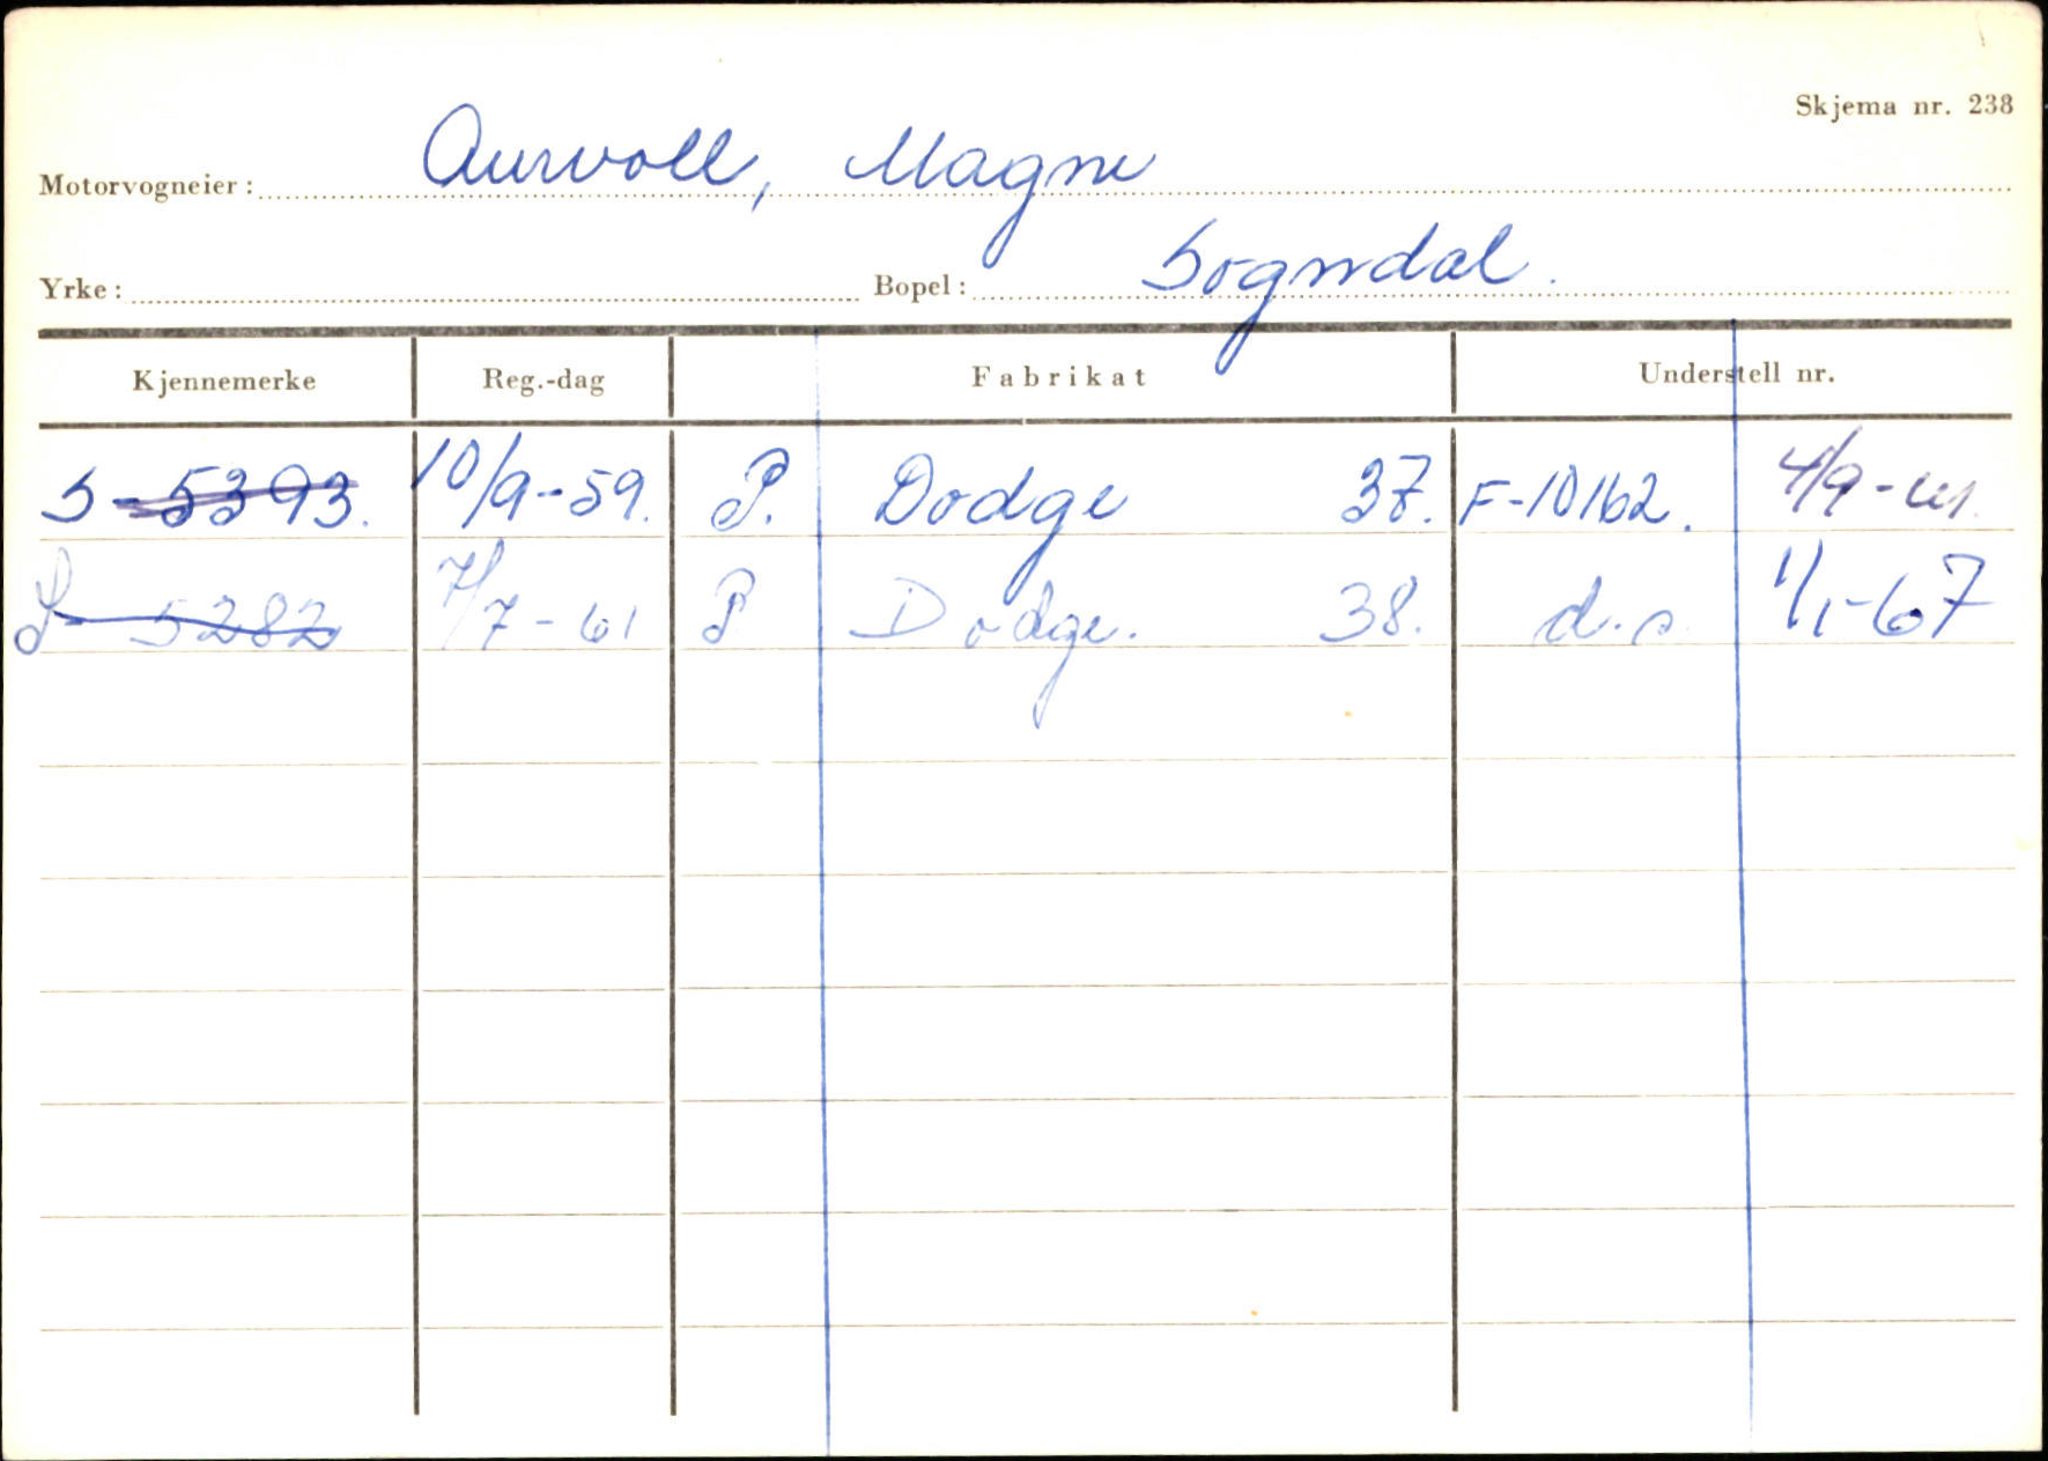 Skjema nr. 238
Motorvogneier: Aurvoll, Magne
Yrke: Bopel: Sogndal.
Kjennemerke Reg.-dag Fabrikat Understell nr.
S-5393. 10/9-59. P. Dodge 37. F-10162. 4/9-61.
S-5282 7/7-61 P Dodge. 38. d.o 1/1-67